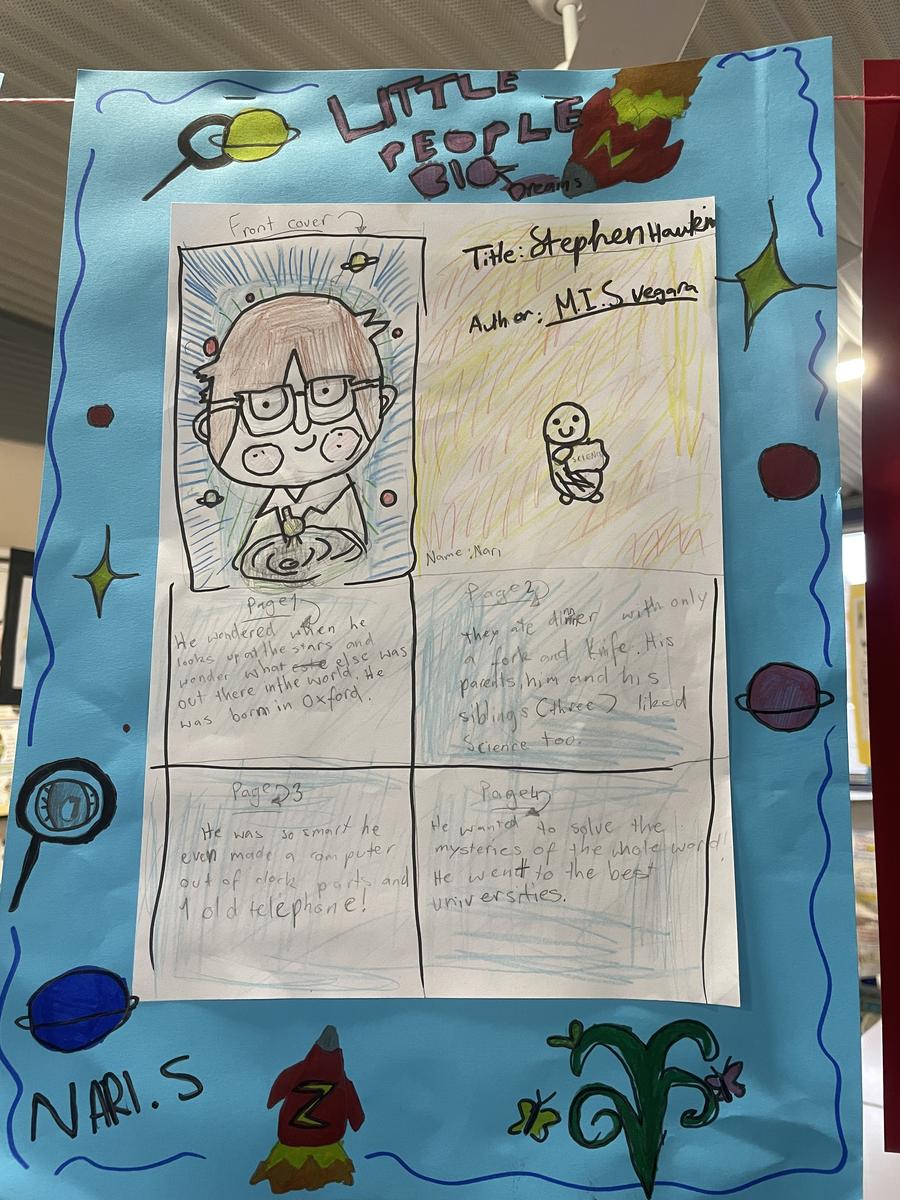 LITTLE
PEOPLE
BIG
Dreams
Front cover
Title: Stephen Hawkin
Author: M.I.S Vegara
SCIENCE
Name: Nari
Page 1
He wondered when he
looks up at the stars and
wonder what else was
out there in the world. He
was born in Oxford.
Page 2
they ate dinner with only
a fork and Knife. His
parents, him and his
siblings (three) liked
Science too.
Page 3
He was so smart he
even made a computer
out of clock parts and
1 old telephone!
Page 4
He wanted to solve the
mysteries of the whole world!
He went to the best
universities.
NARI.S
Z